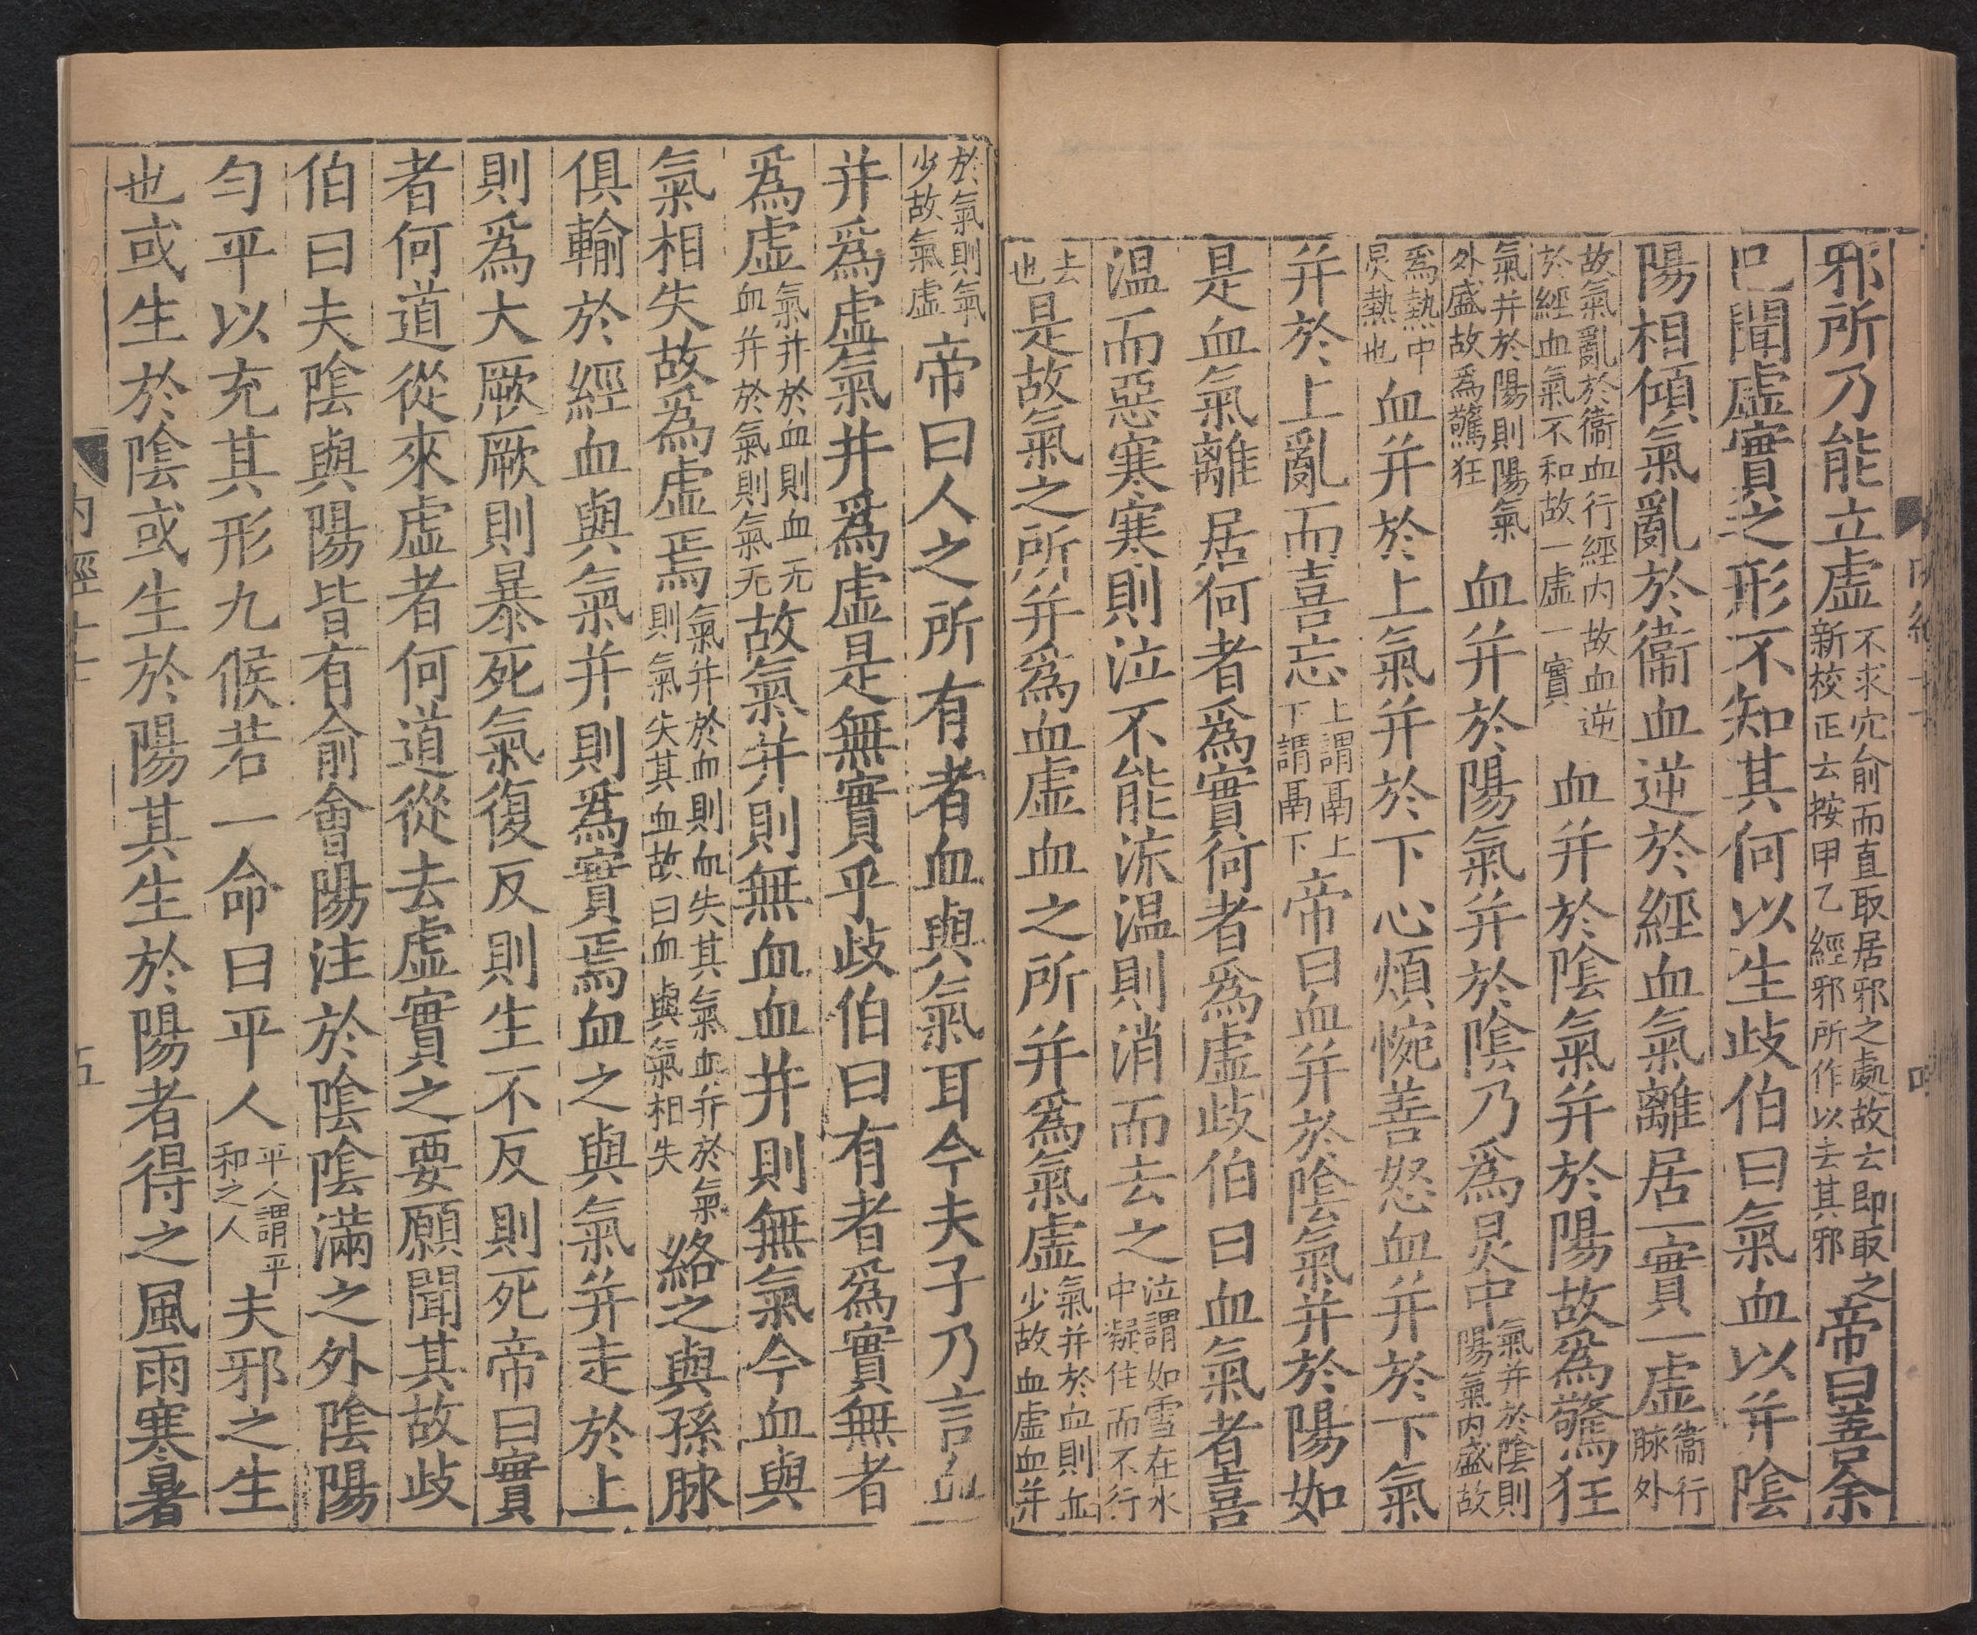 邪所乃能立虛不求穴俞而直取居邪之處故云即取之
新校正云按甲乙經邪所作以去其邪帝曰善余
已聞虛實之形不知其何以生歧伯曰氣血以并陰
陽相傾氣亂於衞血逆於經血氣離居一實一虛衞行
脉外
故氣亂於衞血行經内故血逆
於經血氣不和故一虛一實血并於陰氣并於陽故爲驚狂
氣并於陽則陽氣
外盛故爲驚狂血并於陽氣并於陰乃爲炅中氣并於陰則
陽氣内盛故
爲熱中
炅熱也血并於上氣并於下心煩惋善怒血并於下氣
并於上亂而喜忘上謂鬲上
下謂鬲下帝曰血并於陰氣并於陽如
是血氣離居何者爲實何者爲虛歧伯曰血氣者喜
温而惡寒寒則泣不能流温則消而去之泣謂如雪在水
中凝住而不行
去
也是故氣之所并爲血虛血之所并爲氣虛氣并於血則血
少故血虛血并
於氣則氣
少故氣虛帝曰人之所有者血與氣耳今夫子乃言血
并爲虛氣并爲虛是無實乎歧伯曰有者爲實無者
爲虛氣并於血則血无
血并於氣則氣无故氣并則無血血并則無氣今血與
氣相失故爲虛焉氣并於血則血失其氣血并於氣
則氣失其血故曰血與氣相失絡之與孫脉
俱輸於經血與氣并則爲實焉血之與氣并走於上
則爲大厥厥則暴死氣復反則生不反則死帝曰實
者何道從來虛者何道從去虛實之要願聞其故歧
伯曰夫陰與陽皆有俞會陽注於陰陰滿之外陰陽
勻平以充其形九候若一命曰平人平人謂平
和之人夫邪之生
也或生於陰或生於陽其生於陽者得之風雨寒暑
五